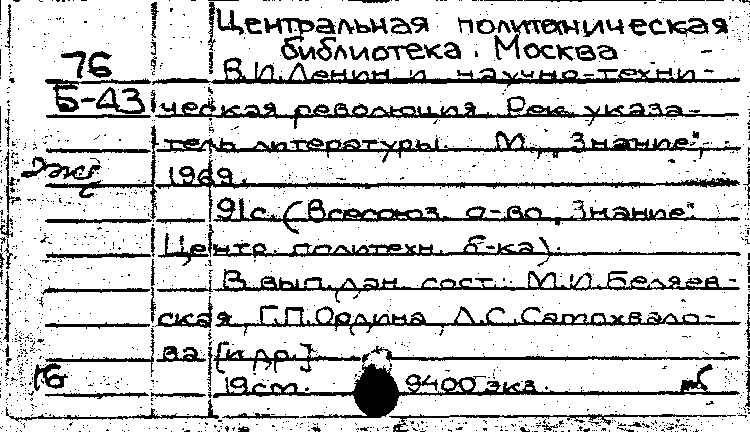 Центральная политехническая
библиотека. Москва
76 В.И.Ленин и научно-техни-
Б-43 ческая революция. Рек. указа-
тель литературы. М., "Знание",
2экз 1969.
91с. (Всесоюз. о-во "Знание".
Центр. политехн. б-ка).
В вып. дан. сост.: М.И.Беляев-
ская, Г.П.Ордина, Л.С.Самохвало-
ва [и др.]
19cm. 9400 экз.